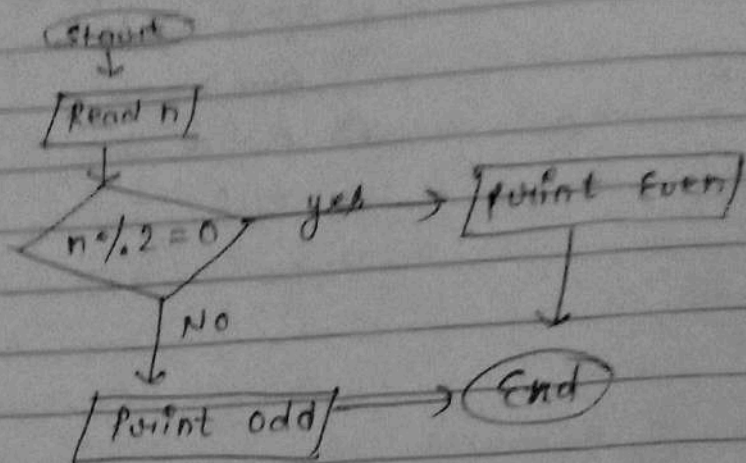 Start
Read n
n%2=0
yes
Print Even
NO
Print odd
End